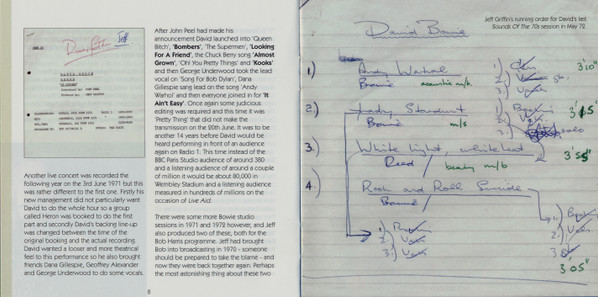 After John Peel had made his
announcement David launched into 'Queen
Bitch', 'Bombers', 'The Supermen', 'Looking
For A Friend', the Chuck Berry song 'Almost
Grown', 'Oh! You Pretty Things' and 'Kooks'
and then George Underwood took the lead
vocal on 'Song For Bob Dylan', Dana
Gillespie sang lead on the song 'Andy
Warhol' and then everyone joined in for 'It
Ain't Easy'. Once again some judicious
editing was required and this time it was
'Pretty Thing' that did not make the
transmission on the 20th June. It was to be
another 14 years before David would be
heard performing in front of an audience
again on Radio 1. This time instead of the
BBC Paris Studio audience of around 380
and a listening audience of around a couple
of million it would be about 80,000 in
Wembley Stadium and a listening audience
measured in hundreds of millions on the
occasion of Live Aid.
There were some more Bowie studio
sessions in 1971 and 1972 however, and Jeff
also produced two of these, both for the
Bob Harris programme. Jeff had brought
Bob into broadcasting in 1970 - someone
should be prepared to take the blame - and
now they were back together again. Perhaps
the most astonishing thing about these two
Another live concert was recorded the
following year on the 3rd June 1971 but this
was rather different to the first one. Firstly his
new management did not particularly want
David to do the whole hour so a group
called Heron was booked to do the first
part and secondly David's backing line-up
was changed between the time of the
original booking and the actual recording.
David wanted a looser and more theatrical
feel to this performance so he also brought
friends Dana Gillespie, Geoffrey Alexander
and George Underwood to do some vocals.
8
Jeff Griffin's running order for David's last
Sounds Of The 70s session in May 72.
David Bowie
1) Andy Warhol 3'10"
Bowie acoustic m/b.
2) Lady Stardust
Bowie m/s
3) White light, white heat 3'55"
Reed / beaty m/b
4) Rock and Roll Suicide
Bowie
3'05"